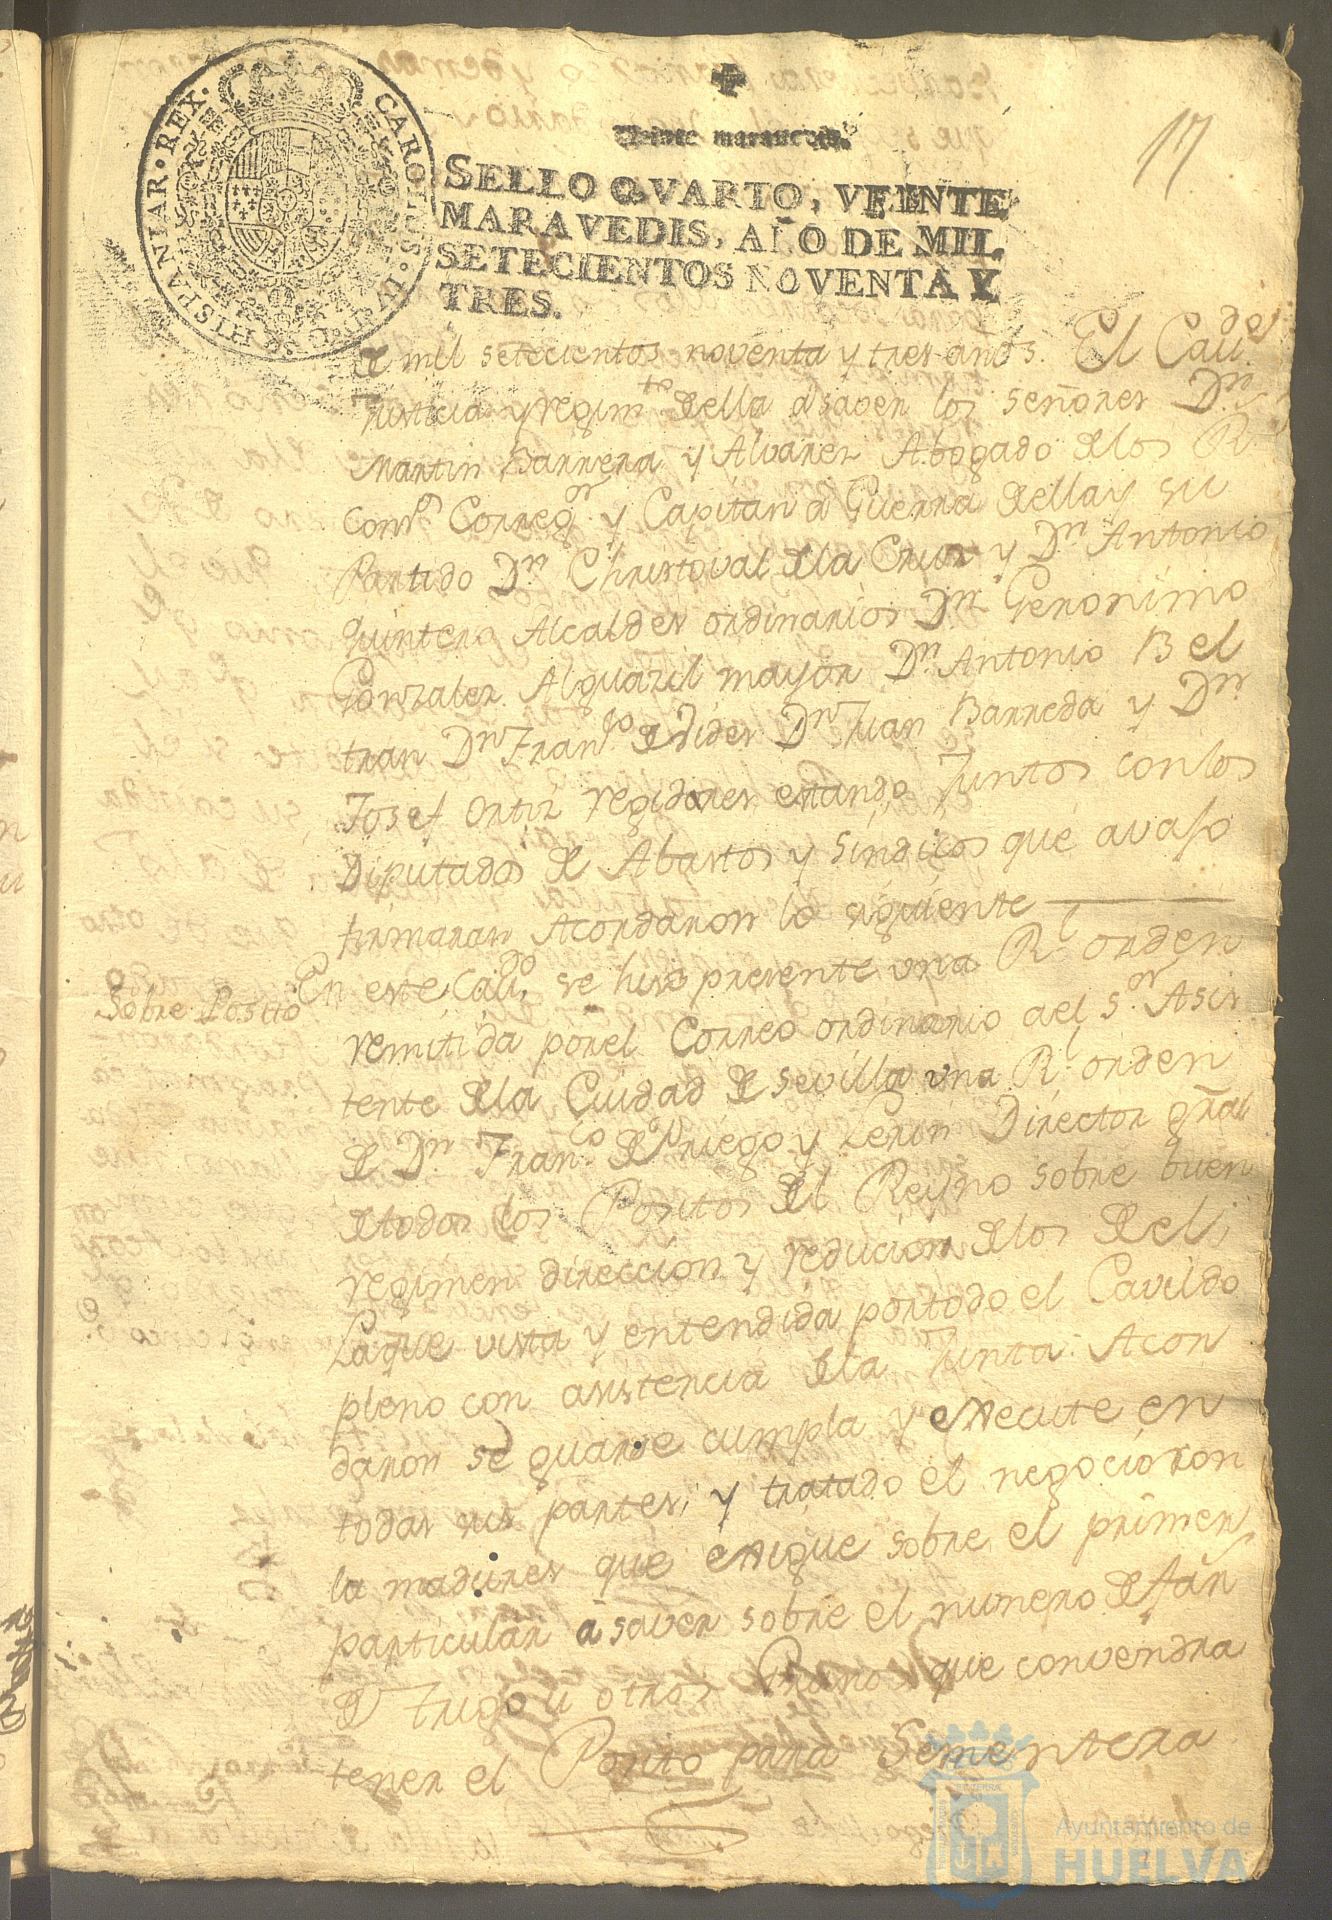 17
Veinte maravedis.
SELLO QVARTO, VEINTE
MARAVEDIS, AÑO DE MIL
SETECIENTOS NOVENTA Y
TRES.
CAROLUS IV D G HISPANIAR REX
de mil setecientos noventa y tres años El Cavdo
Justicia y regimto de ella a saver los señores Dn
Martin Barrera y Alvarez Abogado de los Rs
Consos Corregor y Capitan a Guerra de ella y su
Partido Dn Christoval de la Cruz y Dn Antonio
Quintero Alcaldes ordinarios Dn Geronimo
Gonzalez Alguazil mayor Dn Antonio Bel
tran Dn Franco de Vides Dn Juan Barreda y Dn
Josef Ortiz regidores estando Juntos con los
Diputados de Abastos y Sindicos que avajo
firmaran Acordaron lo siguiente
Sobre Posito
En este Cavdo se hiso presente una Rl orden
remitida por el Correo ordinario del Sor Asis
tente de la Ciudad de Sevilla una Rl orden
de Dn Franco de Priego y Lerin Director gral
de todos los Positos del Reyno sobre buen
regimen direccion y reducion de los de el;
La que vista y entendida por todo el Cavildo
pleno con asistencia de la Junta Acor
daron se guarde cumpla y execute en
todas sus partes; y tratado el negocio con
la madures que exigue sobre el primer
particular a saver sobre el numero de fan
de Trigo u otros Granos que convendra
tener el Posito para Sementera
Ayuntamiento de
HUELVA